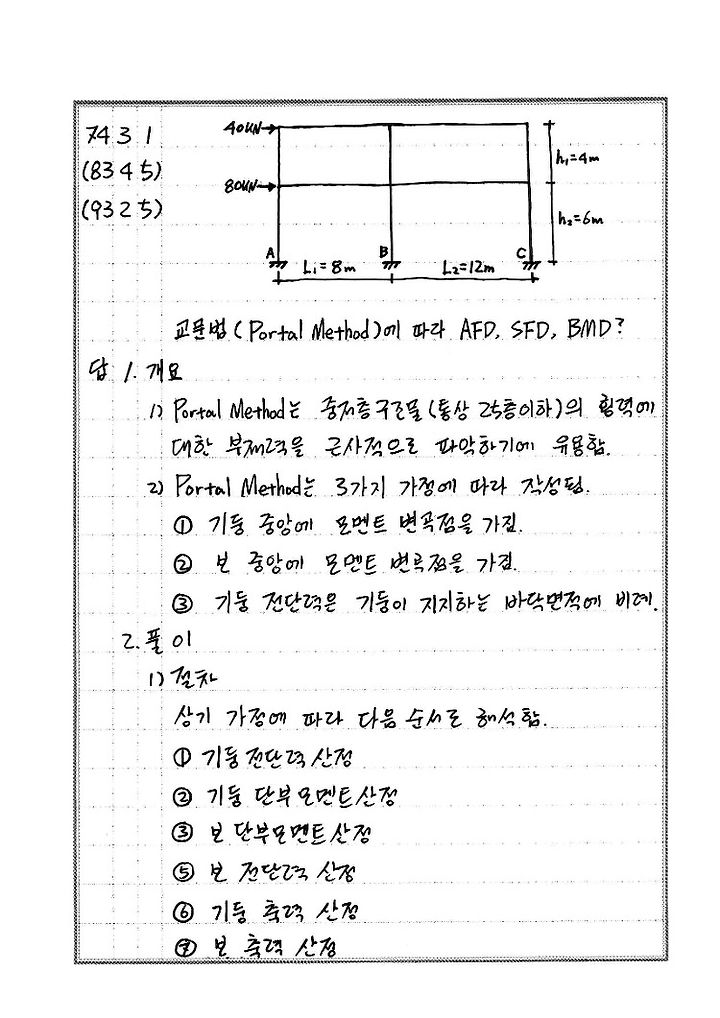 7431
(8345)
(9325)
40KN
80KN
h₁=4m
h₂=6m
A B C
L₁=8m L₂=12m
교문법(Portal Method)에 따라 AFD, SFD, BMD?
답 1. 개요
1) Portal Method는 중저층구조물(통상 25층이하)의 횡력에
대한 부재력을 근사적으로 파악하기에 유용함.
2) Portal Method는 3가지 가정에 따라 작성됨.
① 기둥 중앙에 모멘트 변곡점을 가짐.
② 보 중앙에 모멘트 변곡점을 가짐.
③ 기둥 전단력은 기둥이 지지하는 바닥면적에 비례.
2. 풀이
1) 절차
상기 가정에 따라 다음 순서로 해석함.
① 기둥전단력 산정
② 기둥 단부모멘트산정
③ 보 단부모멘트산정
⑤ 보 전단력 산정
⑥ 기둥 축력 산정
⑦ 보 축력 산정